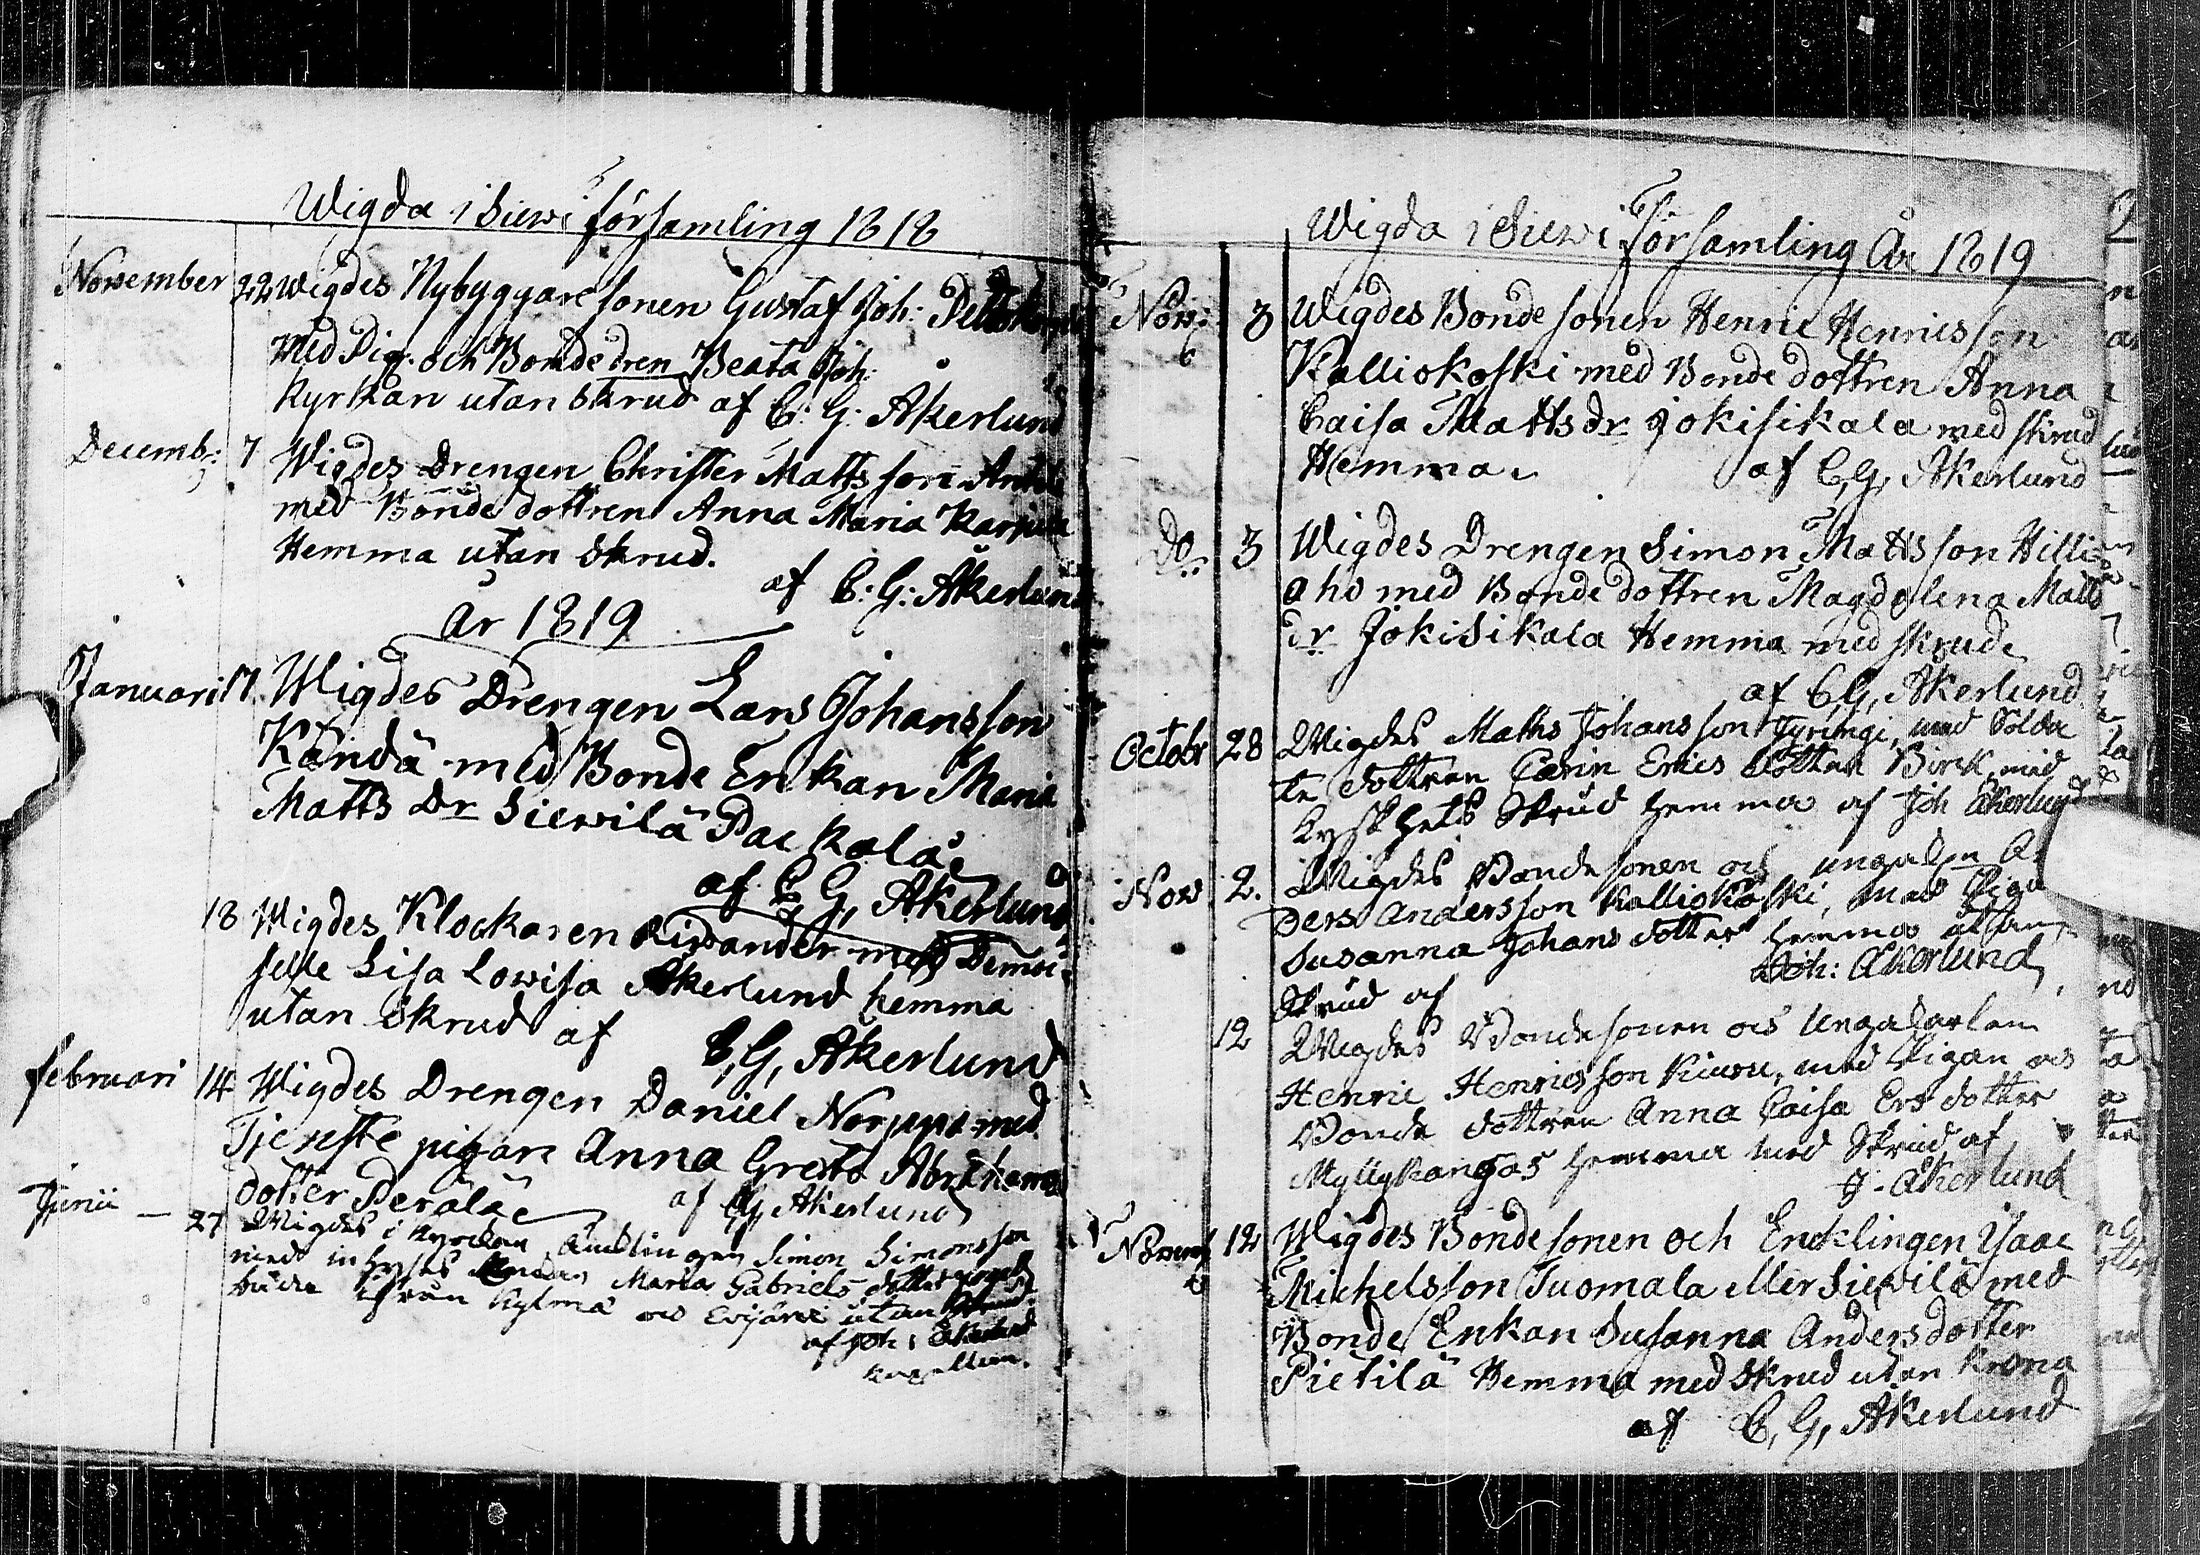 Wigda i Siewi församling 1818
November 22 Wigdes Nybyggare sonen Gustaf Joh:
med Pig. och Bondedren Beata Joh:
Kyrkan utan Skrud af C: G: Åkerlund
Decemb: 7 Wigdes Drengen Christer Matts son
med Bonde dottren Anna Maria
Hemma utan Skrud.
af C: G: Åkerlund
År 1819
Januari 17. Wigdes Drengen Lars Johansson
Kandä med Bonde Enkan Maria
Matts Dr Siewilä Packala
af C, G, Åkerlund
18 Wigdes Klockaren med Demoi-
selle Lisa Lowisa Åkerlund hemma
utan Skrud af C, G, Åkerlund
Februari 14 Wigdes Drengen Daniel Norppa med
Tjenste pigan Anna Greta Abrahams
dotter Perälä af C, G, Åkerlund
Junii — 27 Wigdes i Kyrckan Simon Simonsson
med inhyses Maria Gabriels dotter
ifrån Kylmä och Evijärvi utan Skrud
af Joh: Åkerlund
Wigda i Siewi Församling År 1819
Nov: 3 Wigdes Bonde sonen Henric Henricsson
Kalliokoski med Bonde dottren Anna
Caisa Matts dr Jokisikala med skrud
Hemma. af C, G, Åkerlund
Do 3 Wigdes Drengen Simon Mattsson Hilli-
aho med Bonde dottren Magdalena Matts
dr Jokisikala Hemma med skrud
af C, G, Åkerlund
Octobr 28 Wigdes Matts Johansson med Solda
te dottren Carin Erics dotter Birck med
Kyskhets Skrud hemma af Joh Åkerlund
Nov 2. Wigdes Bondesonen och
ders Andersson Kalliokoski, med Piga
Susanna Johans dotter hemma utan
Skrud af Joh: Åkerlund
12 Wigdes Bondesonen och Ungakarlen
Henric Henricsson Kiuru, med Pigan och
Bonde dottren Anna Caisa Ers dotter
Myllykangas hemma med Skrud af
J. Åkerlund
Novemb 12 Wigdes Bonde sonen och Encklingen Isaac
Michelsson Tuomala eller Siewilä med
Bonde Enkan Susanna Anders dotter
Pietilä Hemma med Skrud utan Krona
af C, G, Åkerlund